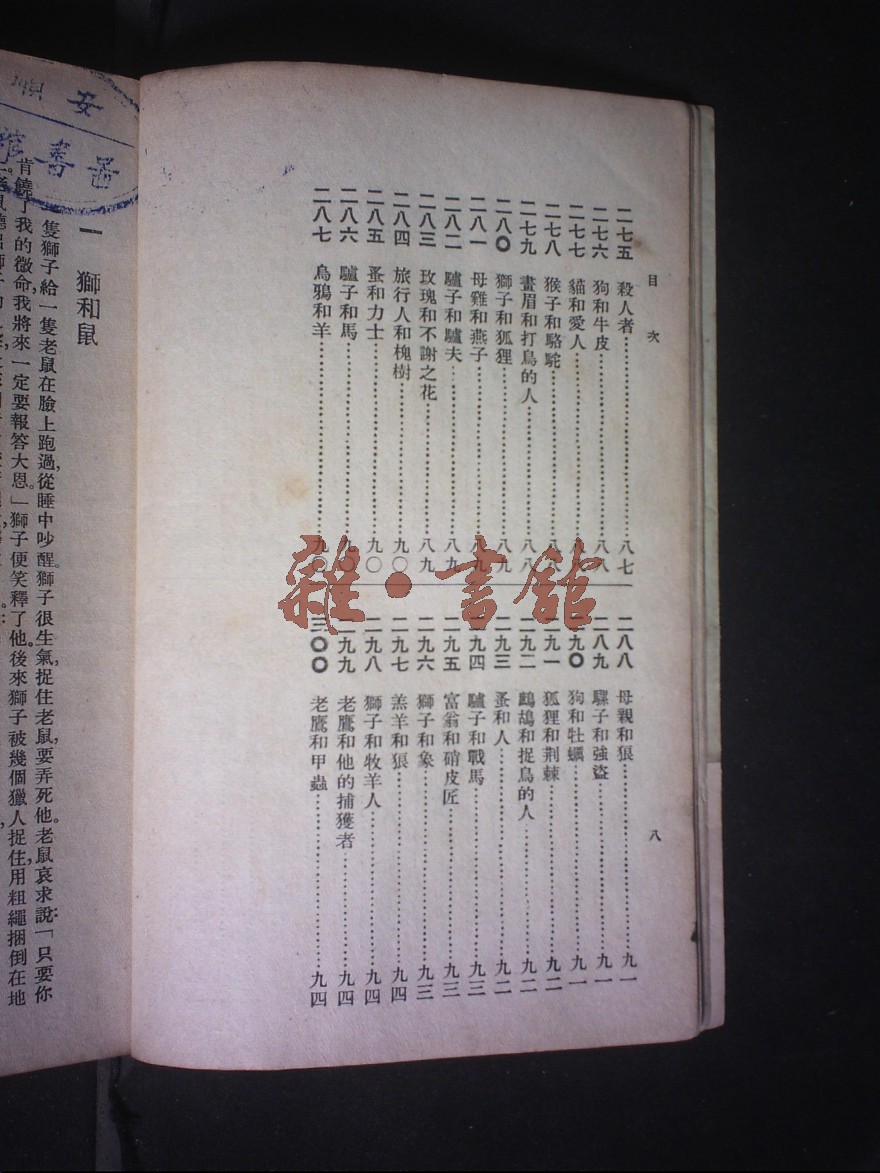 目次 八
二七五 殺人者……八七
二七六 狗和牛皮……八八
二七七 貓和愛人……八八
二七八 猴子和駱駝……八八
二七九 畫眉和打鳥的人……八八
二八〇 獅子和狐狸……八九
二八一 母雞和燕子……八九
二八二 驢子和驢夫……八九
二八三 玫瑰和不謝之花……八九
二八四 旅行人和槐樹……九〇
二八五 蚤和力士……九〇
二八六 驢子和馬……九〇
二八七 烏鴉和羊……九〇
二八八 母親和狼……九一
二八九 騾子和強盜……九一
二九〇 狗和牡蠣……九一
二九一 狐狸和荆棘……九二
二九二 鷓鴣和捉鳥的人……九二
二九三 蚤和人……九二
二九四 驢子和戰馬……九三
二九五 富翁和硝皮匠……九三
二九六 獅子和象……九三
二九七 羔羊和狼……九四
二九八 獅子和牧羊人……九四
二九九 老鷹和他的捕獲者……九四
三〇〇 老鷹和甲蟲……九四
雜·書館
安順
啚書館
一 獅和鼠
一隻獅子給一隻老鼠在臉上跑過，從睡中吵醒。獅子很生氣，捉住老鼠，要弄死他。老鼠哀求說：「只要你
肯饒了我的微命，我將來一定要報答大恩。」獅子便笑釋了他。後來獅子被幾個獵人捉住，用粗繩捆倒在地